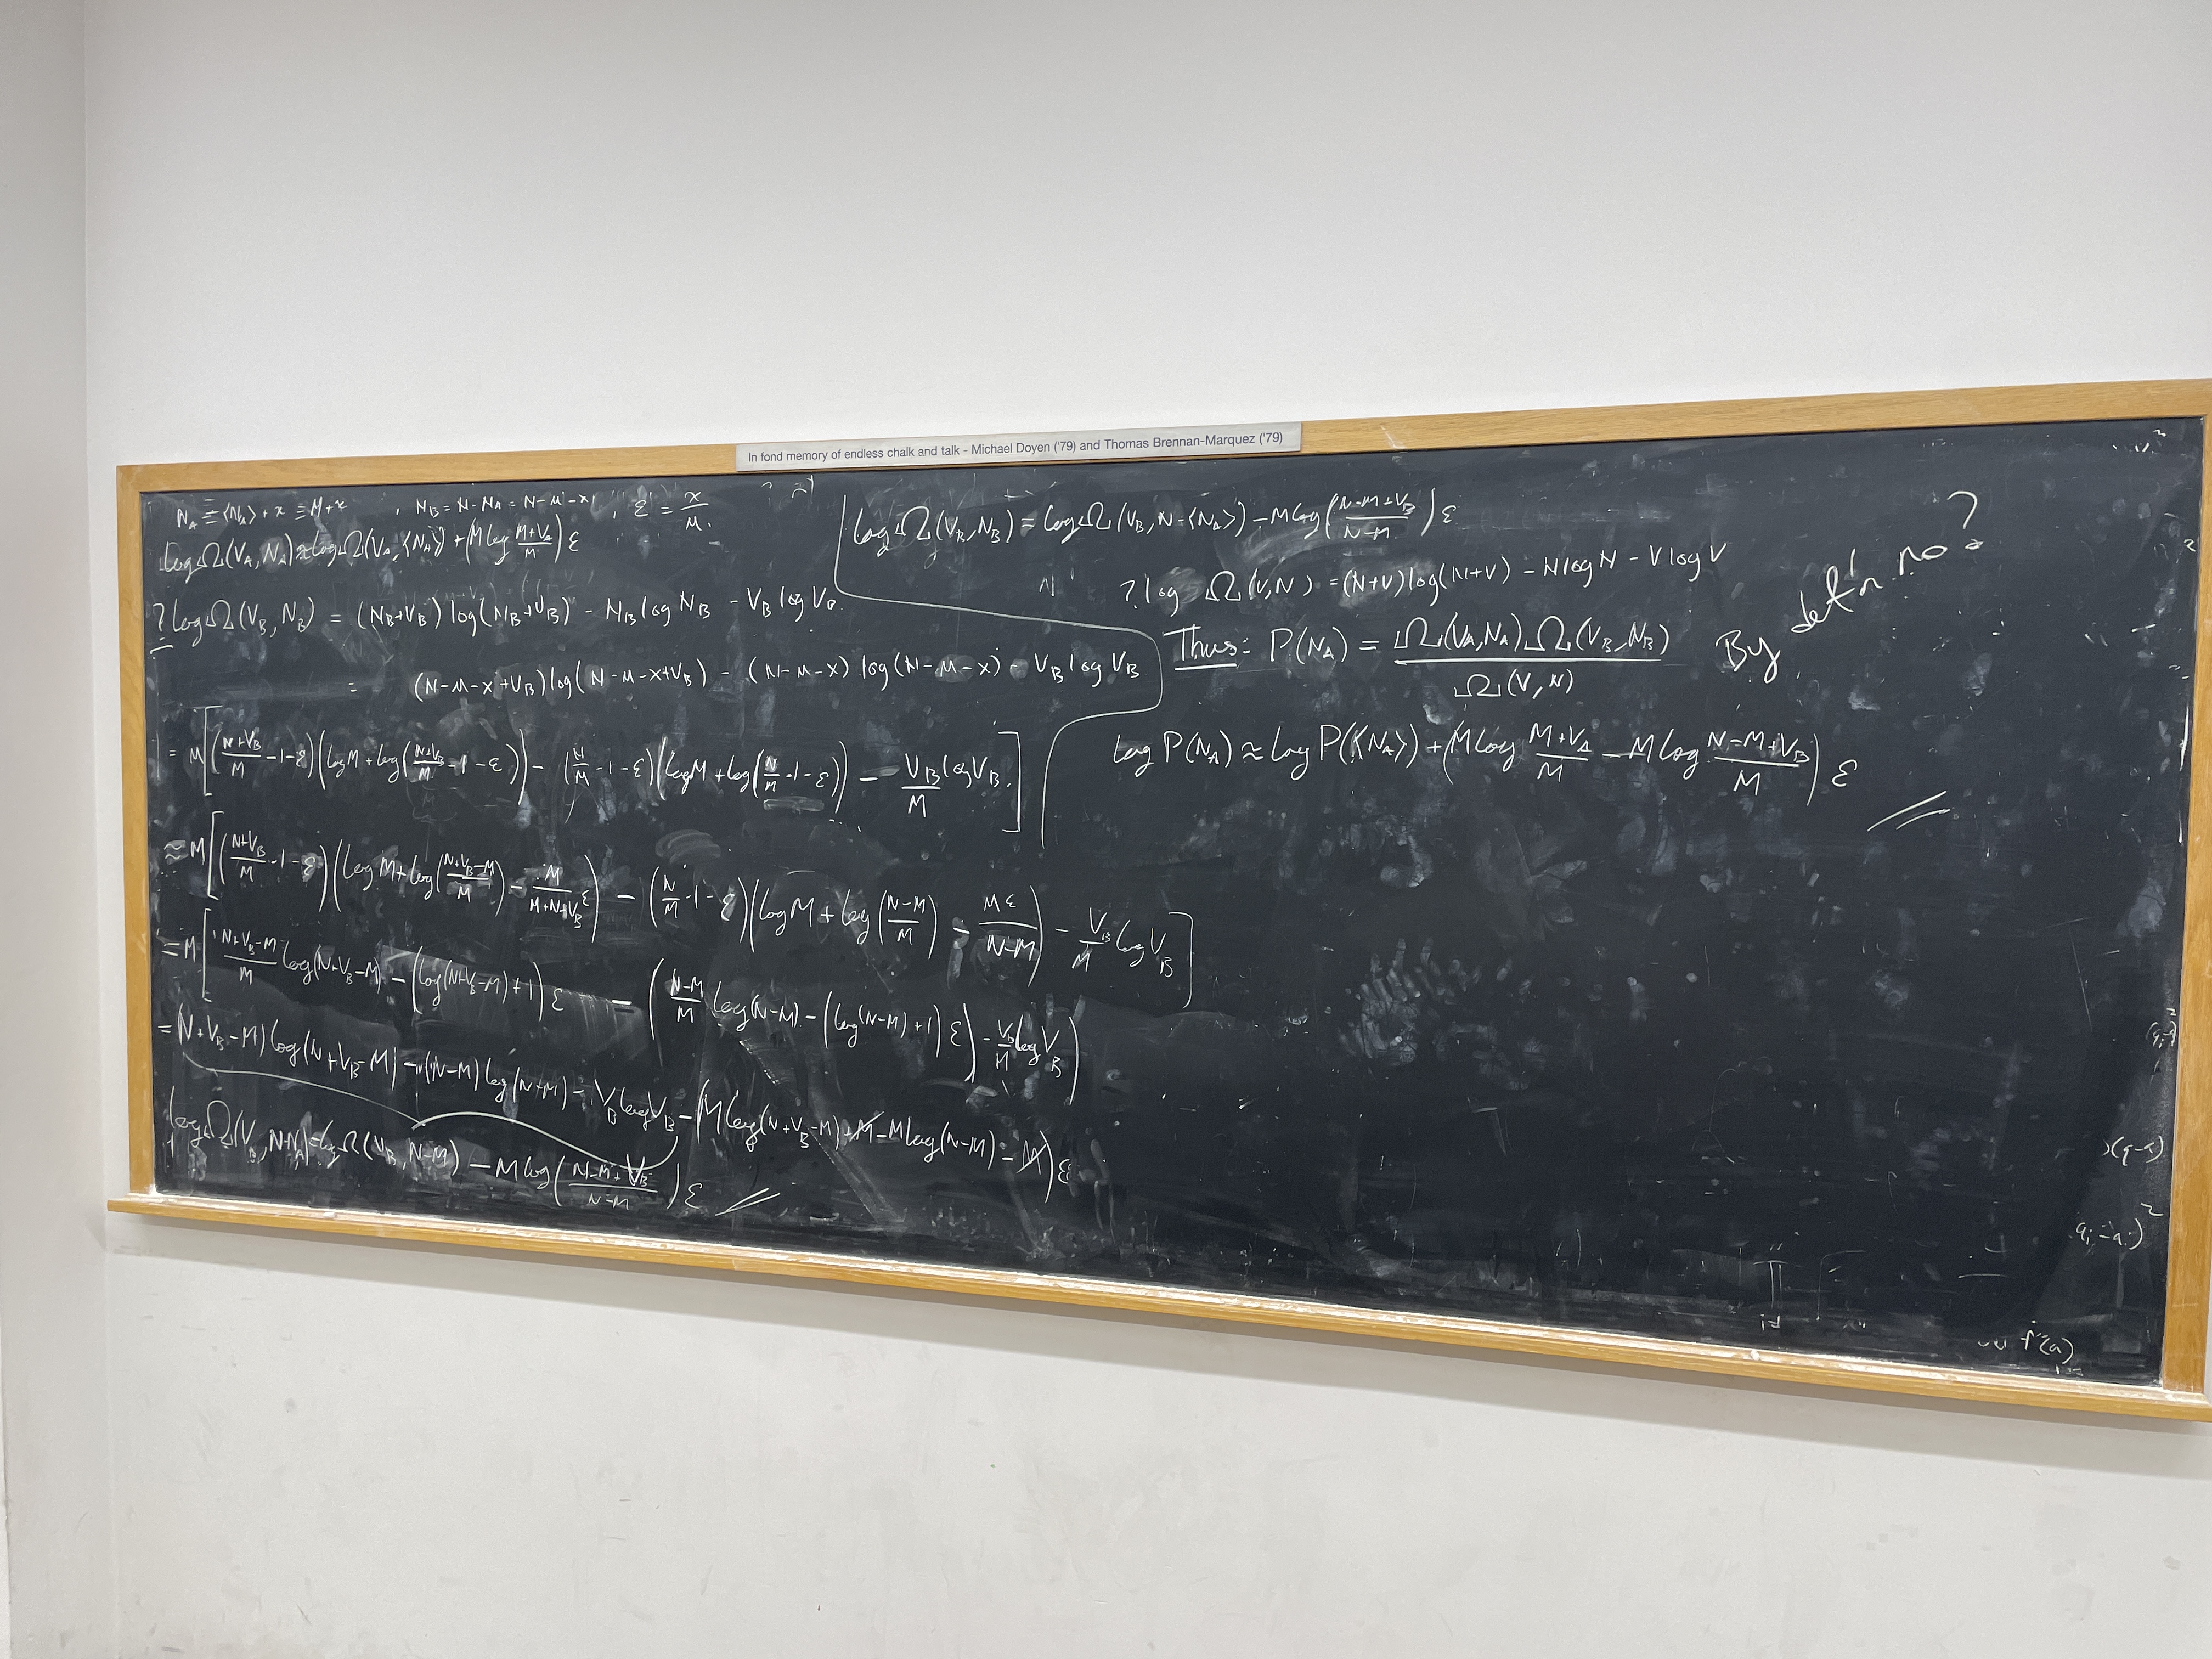 In fond memory of endless chalk and talk - Michael Doyen ('79) and Thomas Brennan-Marquez ('79)
N_A ≡ ⟨N_A⟩ + x ≡ M + x , N_B = N - N_A = N - M - x , ε = x/M .
log Ω(V_A, N_A) ≈ log Ω(V_A, ⟨N_A⟩) + (M log (M+V_A)/M) ε
? log Ω(V_B, N_B) = (N_B+V_B) log(N_B+V_B) - N_B log N_B - V_B log V_B
= (N-M-x+V_B) log(N-M-x+V_B) - (N-M-x) log(N-M-x) - V_B log V_B
= M[((N+V_B)/M - 1 - ε)(log M + log((N+V_B)/M - 1 - ε)) - (N/M - 1 - ε)(log M + log(N/M - 1 - ε)) - V_B/M log V_B.]
≈ M[((N+V_B)/M - 1 - ε)(log M + log((N+V_B-M)/M) - M/(M+N+V_B) ε) - (N/M - 1 - ε)(log M + log((N-M)/M) - Mε/(N-M)) - V_B/M log V_B]
= M[(N+V_B-M)/M log(N+V_B-M) - (log(N+V_B-M)+1) ε - ((N-M)/M log(N-M) - (log(N-M)+1) ε) - V_B/M log V_B)
= (N+V_B-M) log(N+V_B-M) - (N-M) log(N-M) - V_B log V_B - (M log(N+V_B-M) + M - M log(N-M) - M) ε
log Ω(V_B, N-N_A) = log Ω(N_B, N-M) - M log((N-M+V_B)/(N-M)) ε
log Ω(V_B, N_B) = log Ω(V_B, N-⟨N_A⟩) - M log((N-M+V_B)/(N-M)) ε
? log Ω(V, N) = (N+V) log(N+V) - N log N - V log V
Thus: P(N_A) = Ω(V_A, N_A) Ω(V_B, N_B) / Ω(V, N) By def'n no?
?
log P(N_A) ≈ log P(⟨N_A⟩) + (M log (M+V_A)/M - M log (N-M+V_B)/M) ε
f''(a)